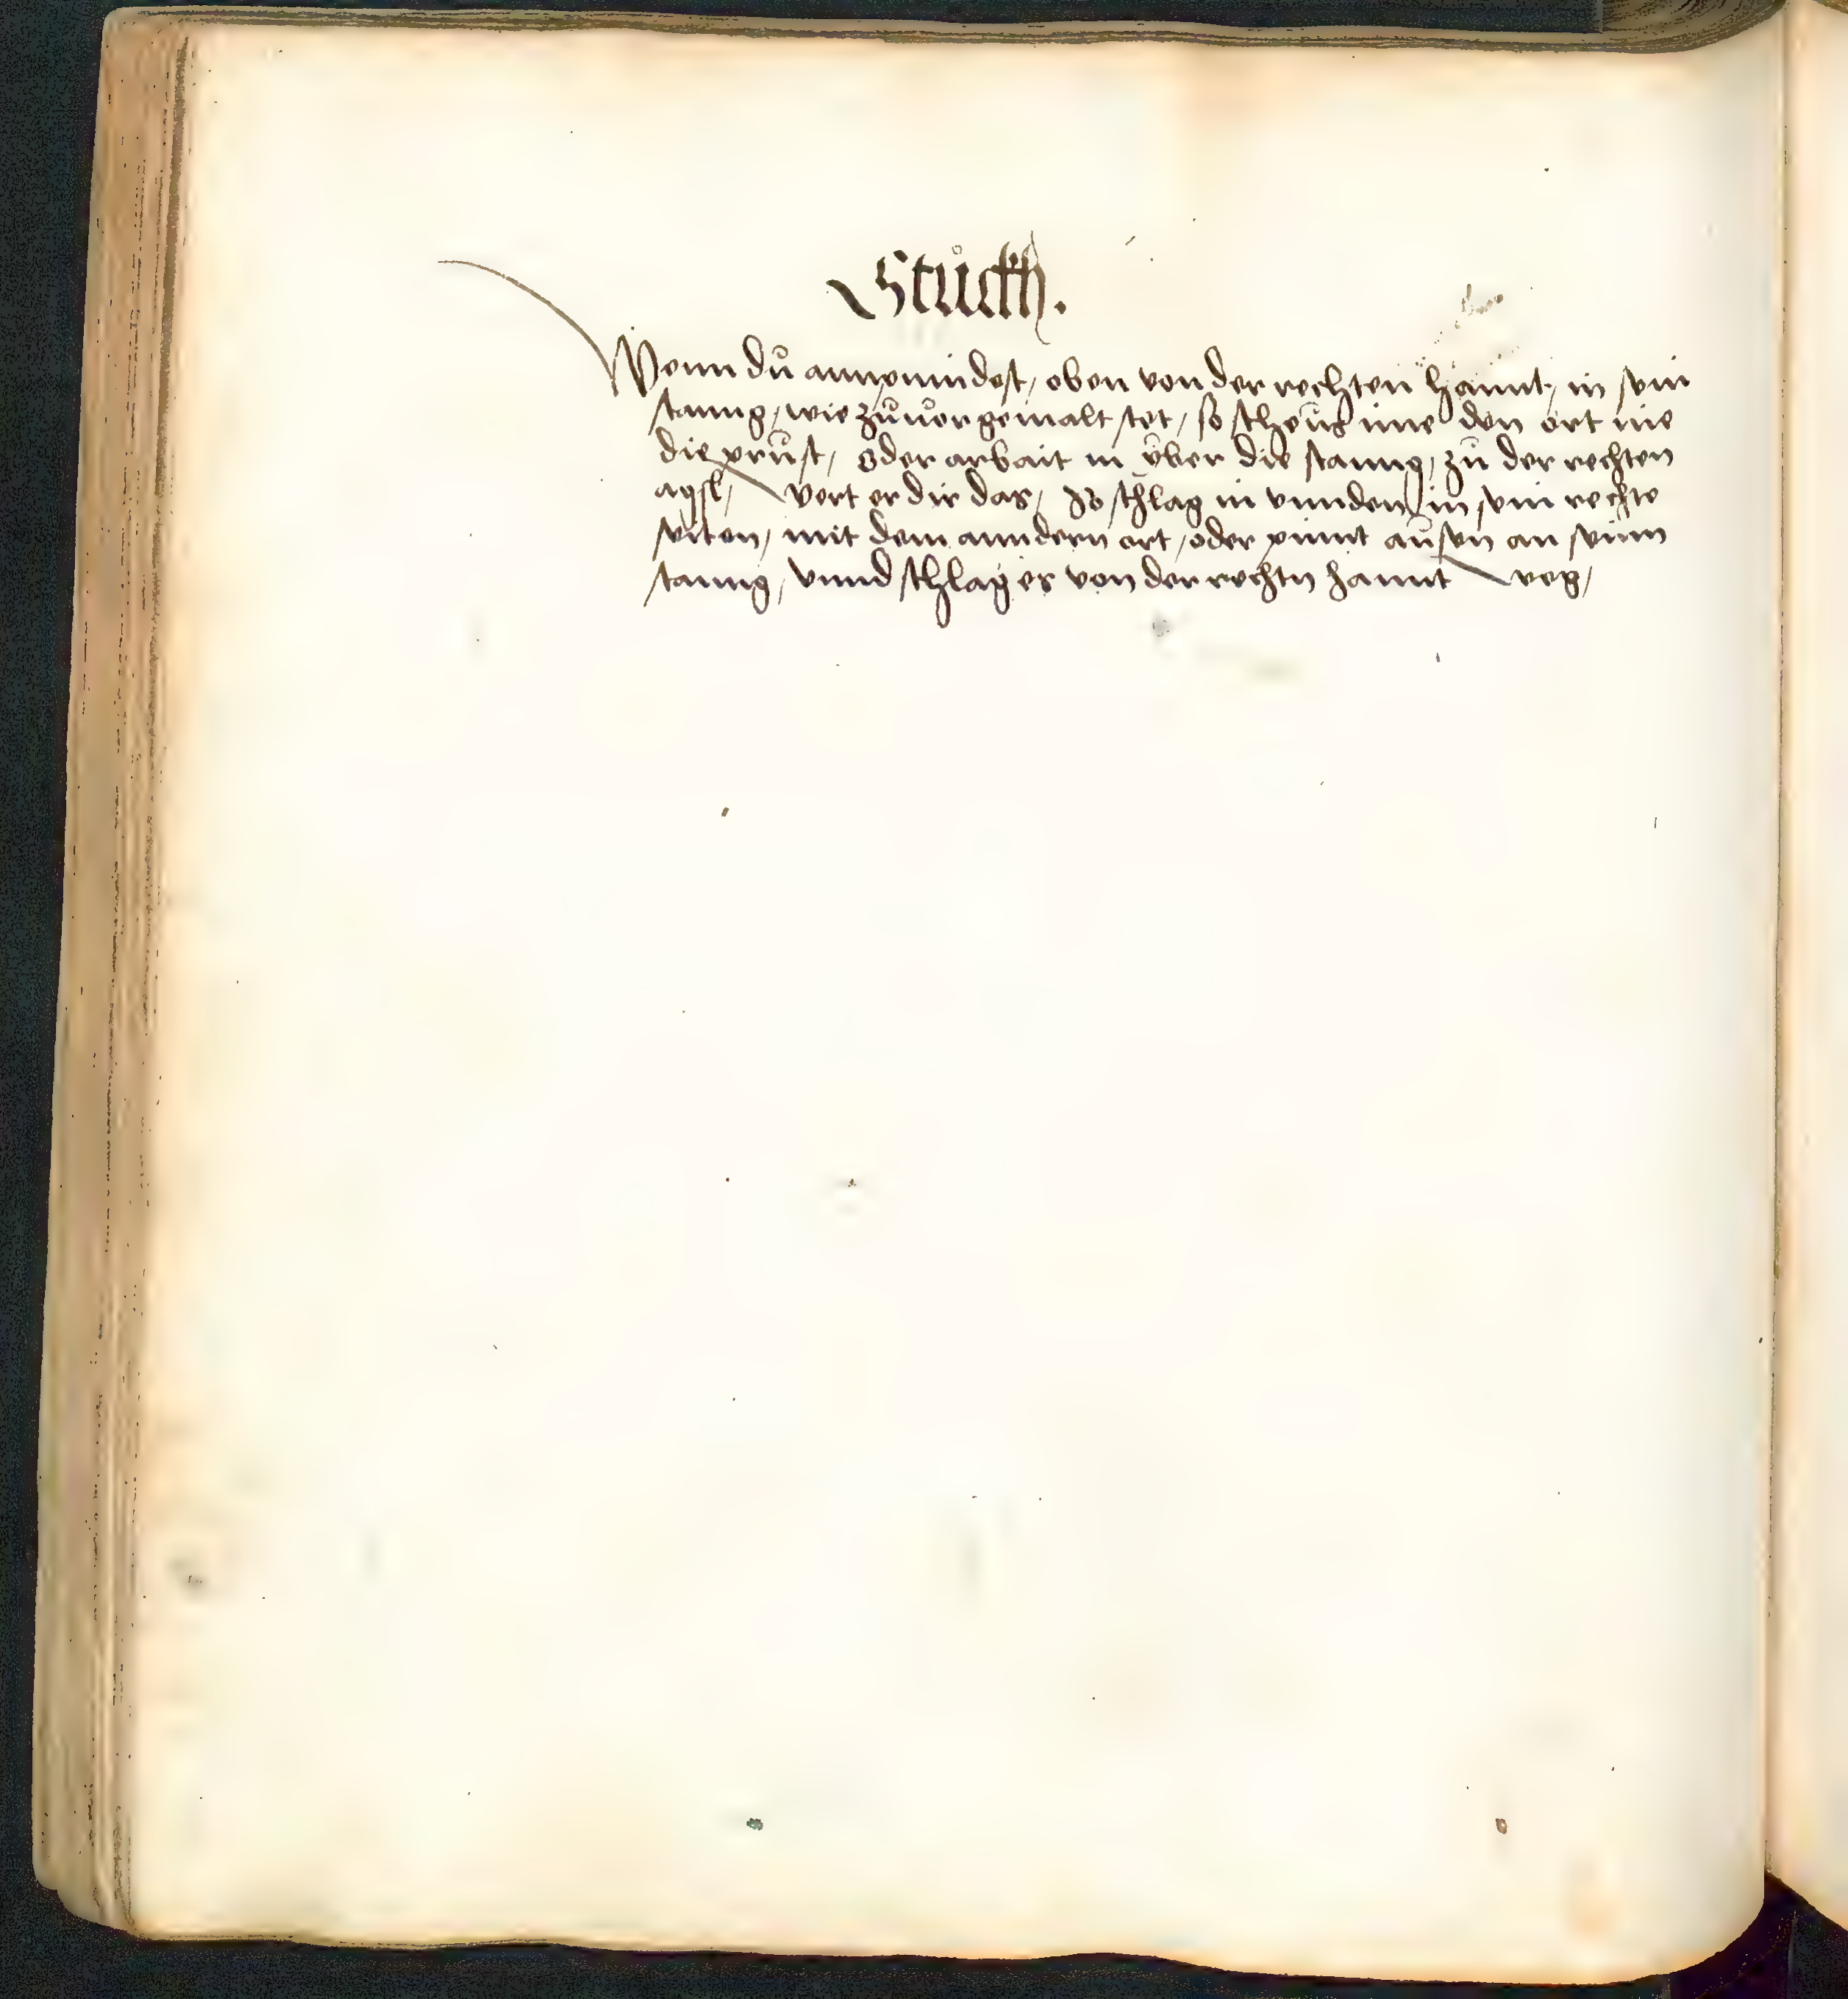 Stůckh.
Wenn dů annpindest, oben von der rechten hannt, in sein
stanng, wie zůuor gemalt stet, so scheůs ime den ort ine
die průst, oder arbait in v̈ber die stanng, zů der rechten
agsl, Vert er dir das, So schlag in vnnden in sein rechte
seiten, mit dem anndern ort, oder pinnt aůsen an seinn
stanng, vnnd schlag es von der rechtn hannt weg,